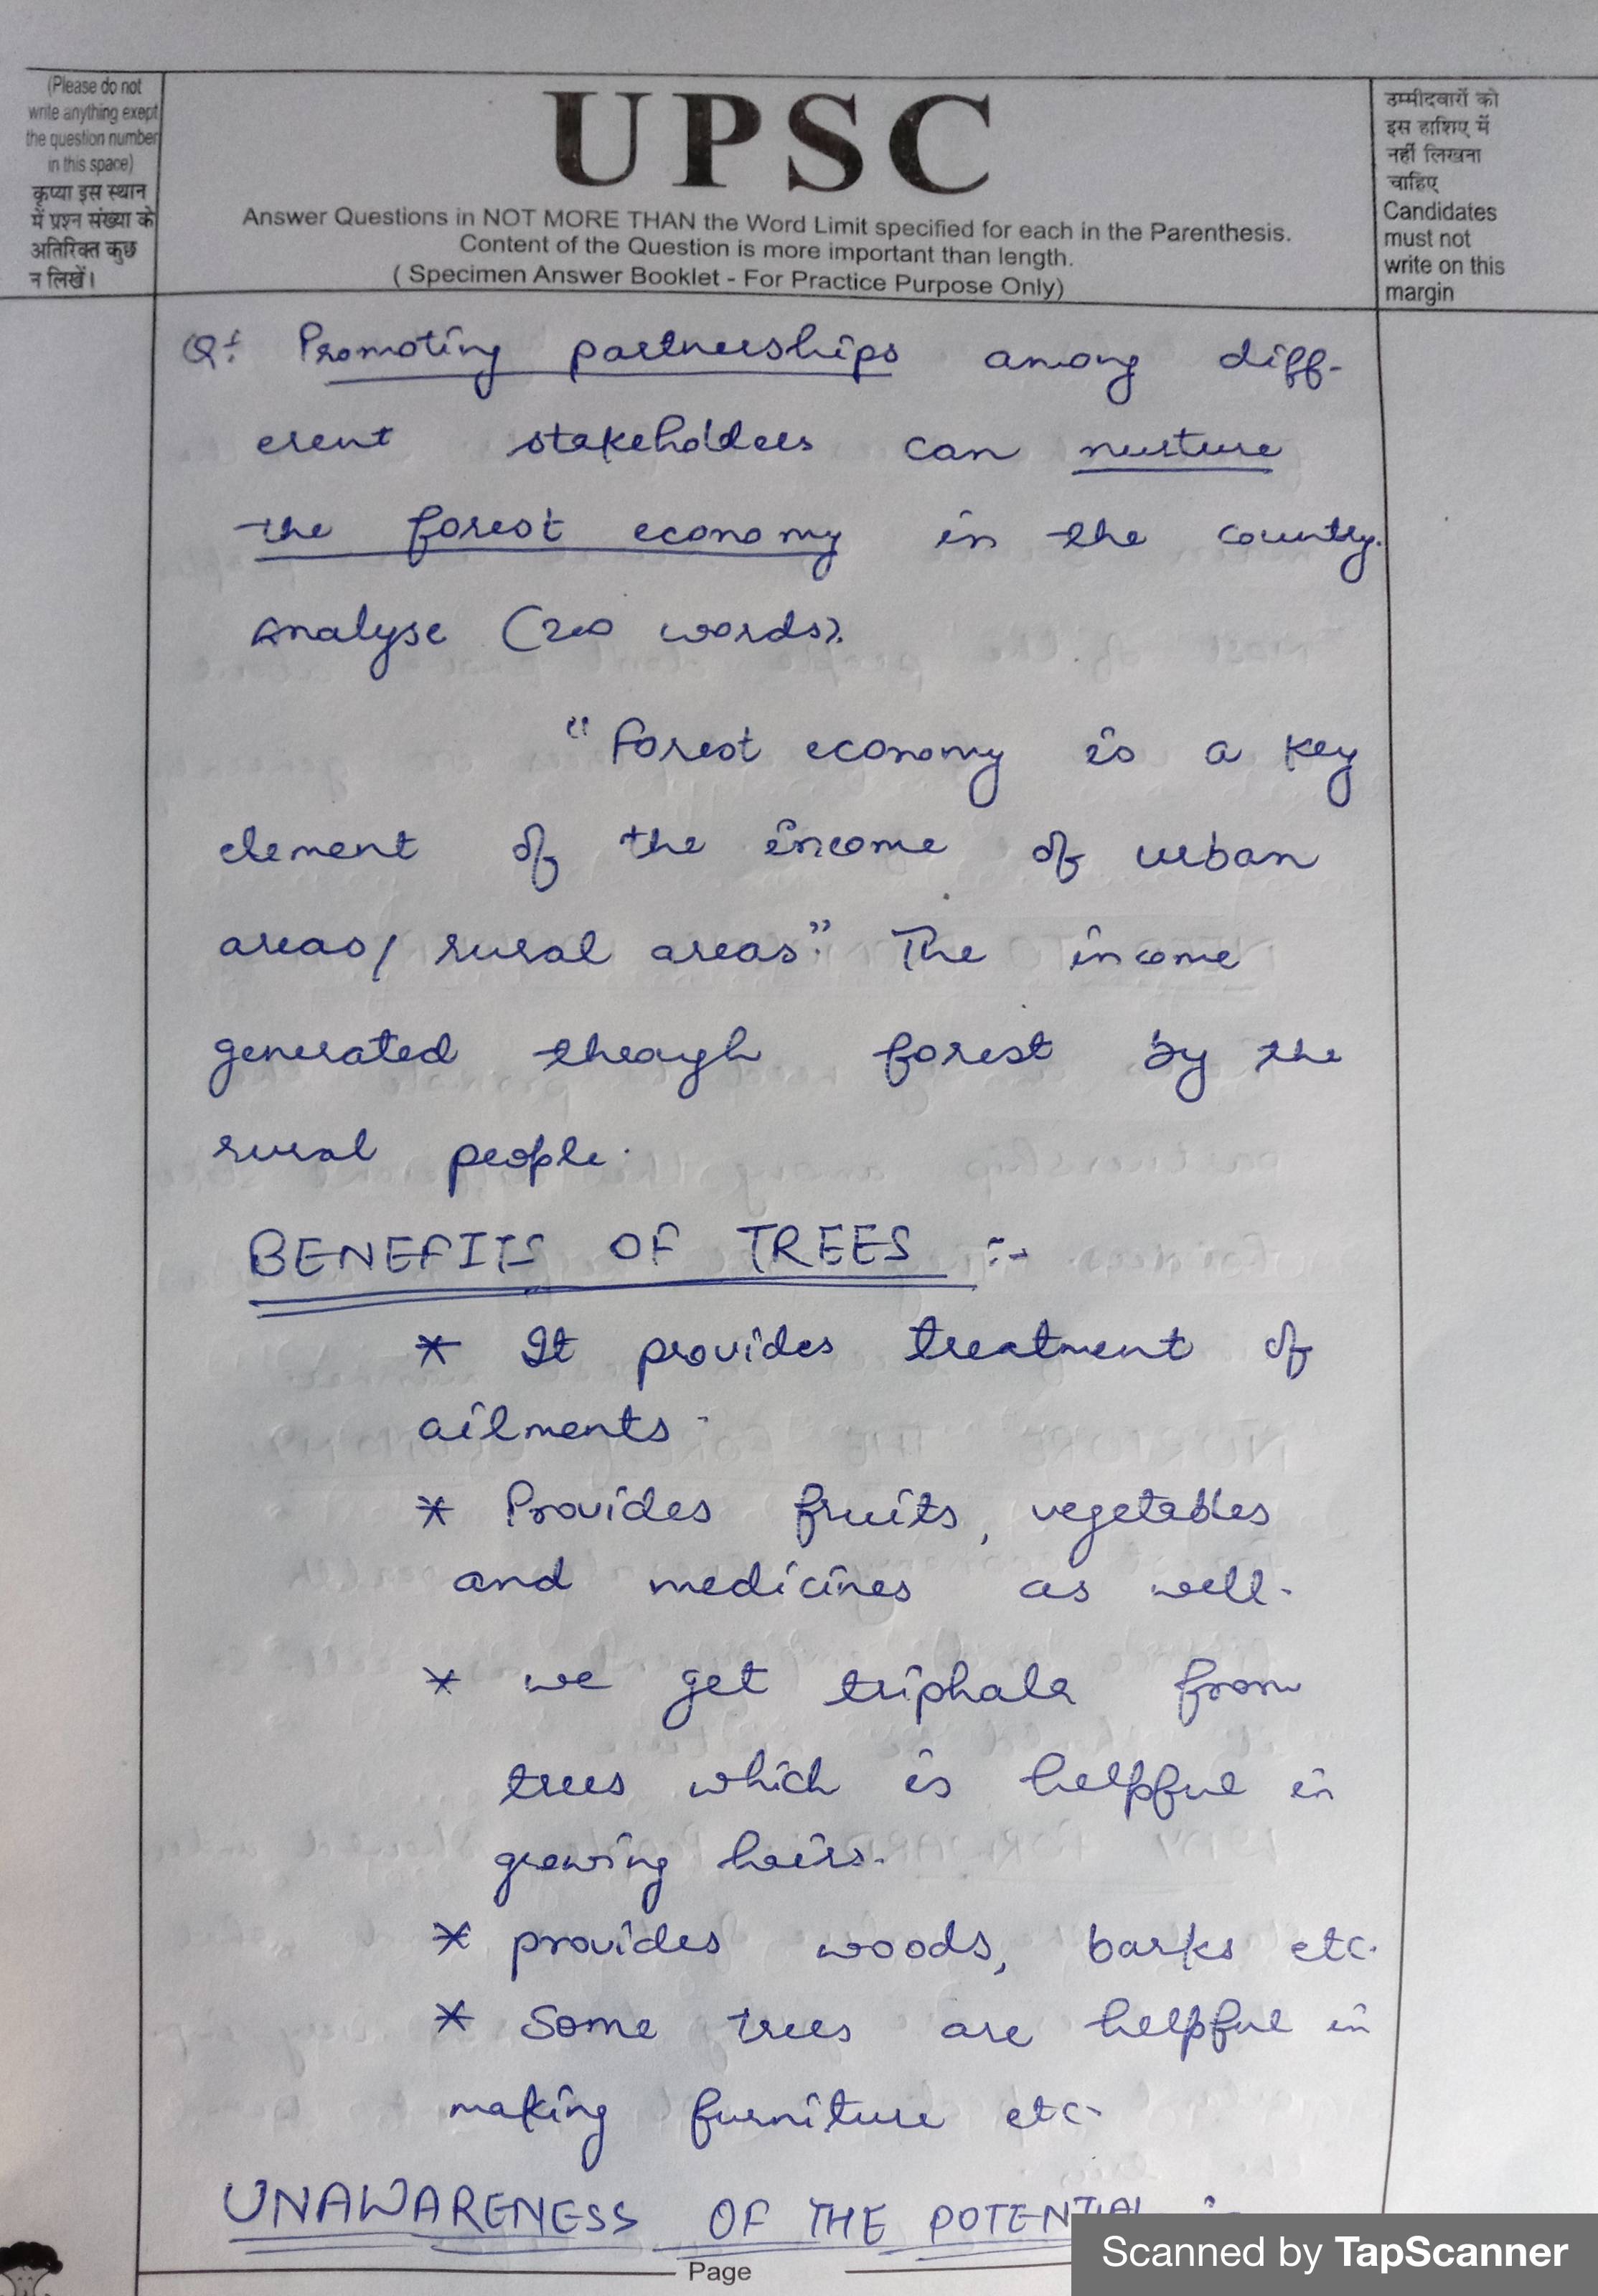 (Please do not
write anything exept
the question number
in this space)
कृप्या इस स्थान
में प्रश्न संख्या के
अतिरिक्त कुछ
न लिखें।
UPSC
Answer Questions in NOT MORE THAN the Word Limit specified for each in the Parenthesis.
Content of the Question is more important than length.
( Specimen Answer Booklet - For Practice Purpose Only)
उम्मीदवारों को
इस हाशिए में
नहीं लिखना
चाहिए
Candidates
must not
write on this
margin
Q: Promoting partnerships among diff-
erent stakeholders can nurture
the forest economy in the country.
Analyse (200 words).
"Forest economy is a key
element of the income of urban
areas/ rural areas". The income
generated through forest by the
rural people.
BENEFITS OF TREES :-
* It provides treatment of
ailments.
* Provides fruits, vegetables
and medicines as well.
* we get triphala from
trees which is helpful in
growing hairs.
* provides woods, barks etc.
* Some trees are helpful in
making furniture etc.
UNAWARENESS OF THE POTENTIAL :-
Page
Scanned by TapScanner